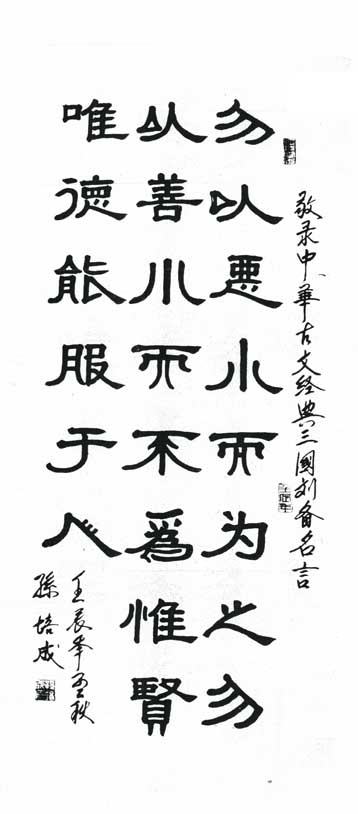 敬录中华古文经典三國刘备名言
勿以恶小而为之勿
以善小而不為惟賢
唯德能服于人
壬辰年孟秋
孫培成